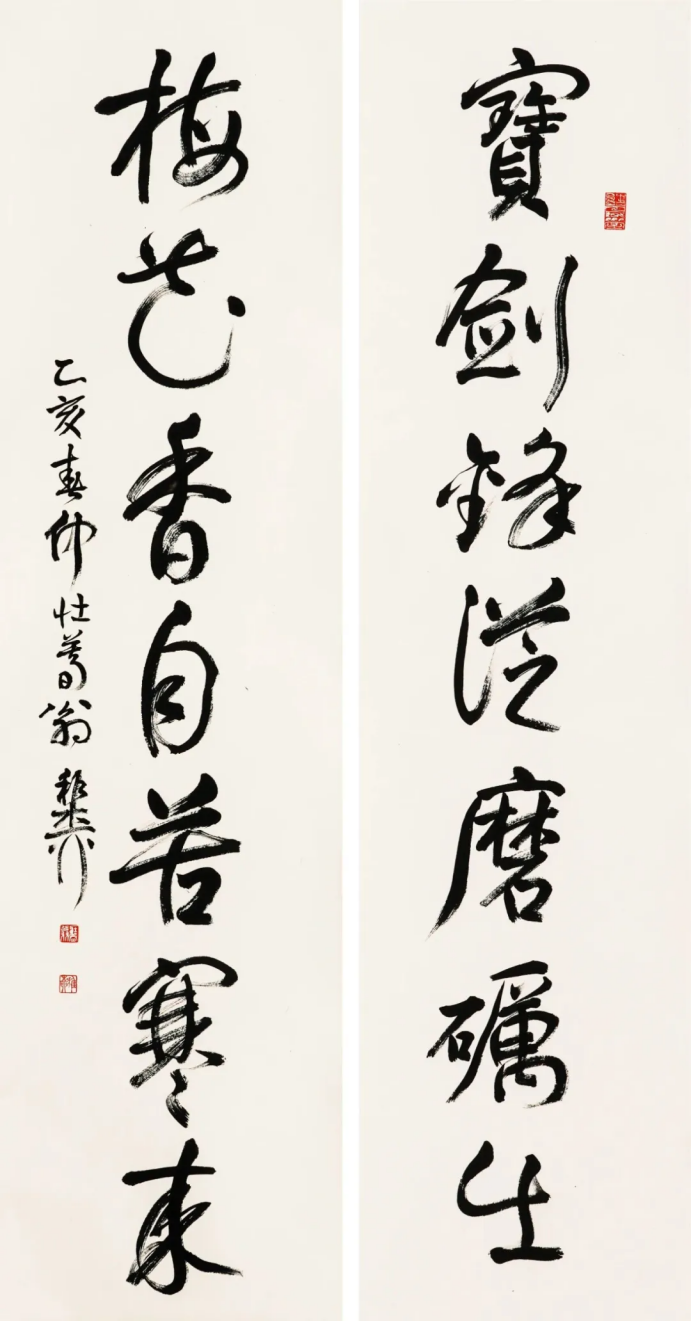 寶劍鋒從磨礪生
梅花香自苦寒來
乙亥春仲壯暮翁稚柳